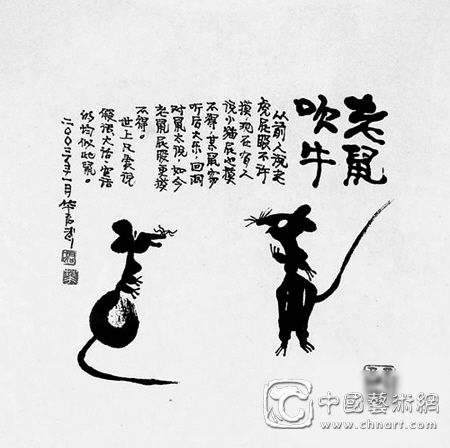 老鼠
吹牛
从前人说老
虎屁股不许
摸,现在有人
说小猫屁也摸
不得,某鼠窃
听后大乐,回洞
对鼠太说:如今
老鼠屁股更摸
不得。
世上凡爱说
假话、大话、空话
的均似此鼠。
年一月华君武
中國藝術網
www.chnart.com